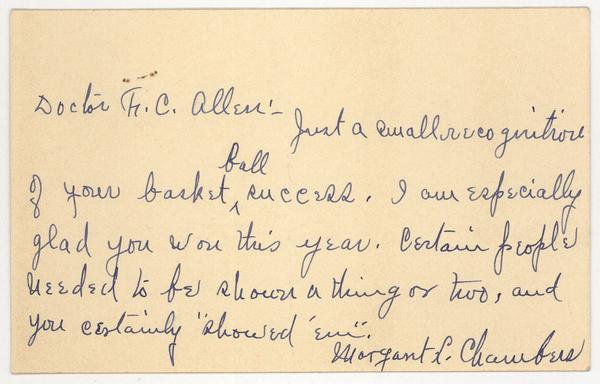 Doctor F. C. Allen:-
Just a small recognition
ball
of your basket ‸ success. I am especially
glad you won this year. Certain people
needed to be shown a thing or two, and
you certainly "showed 'em".
Margart L. Chambers